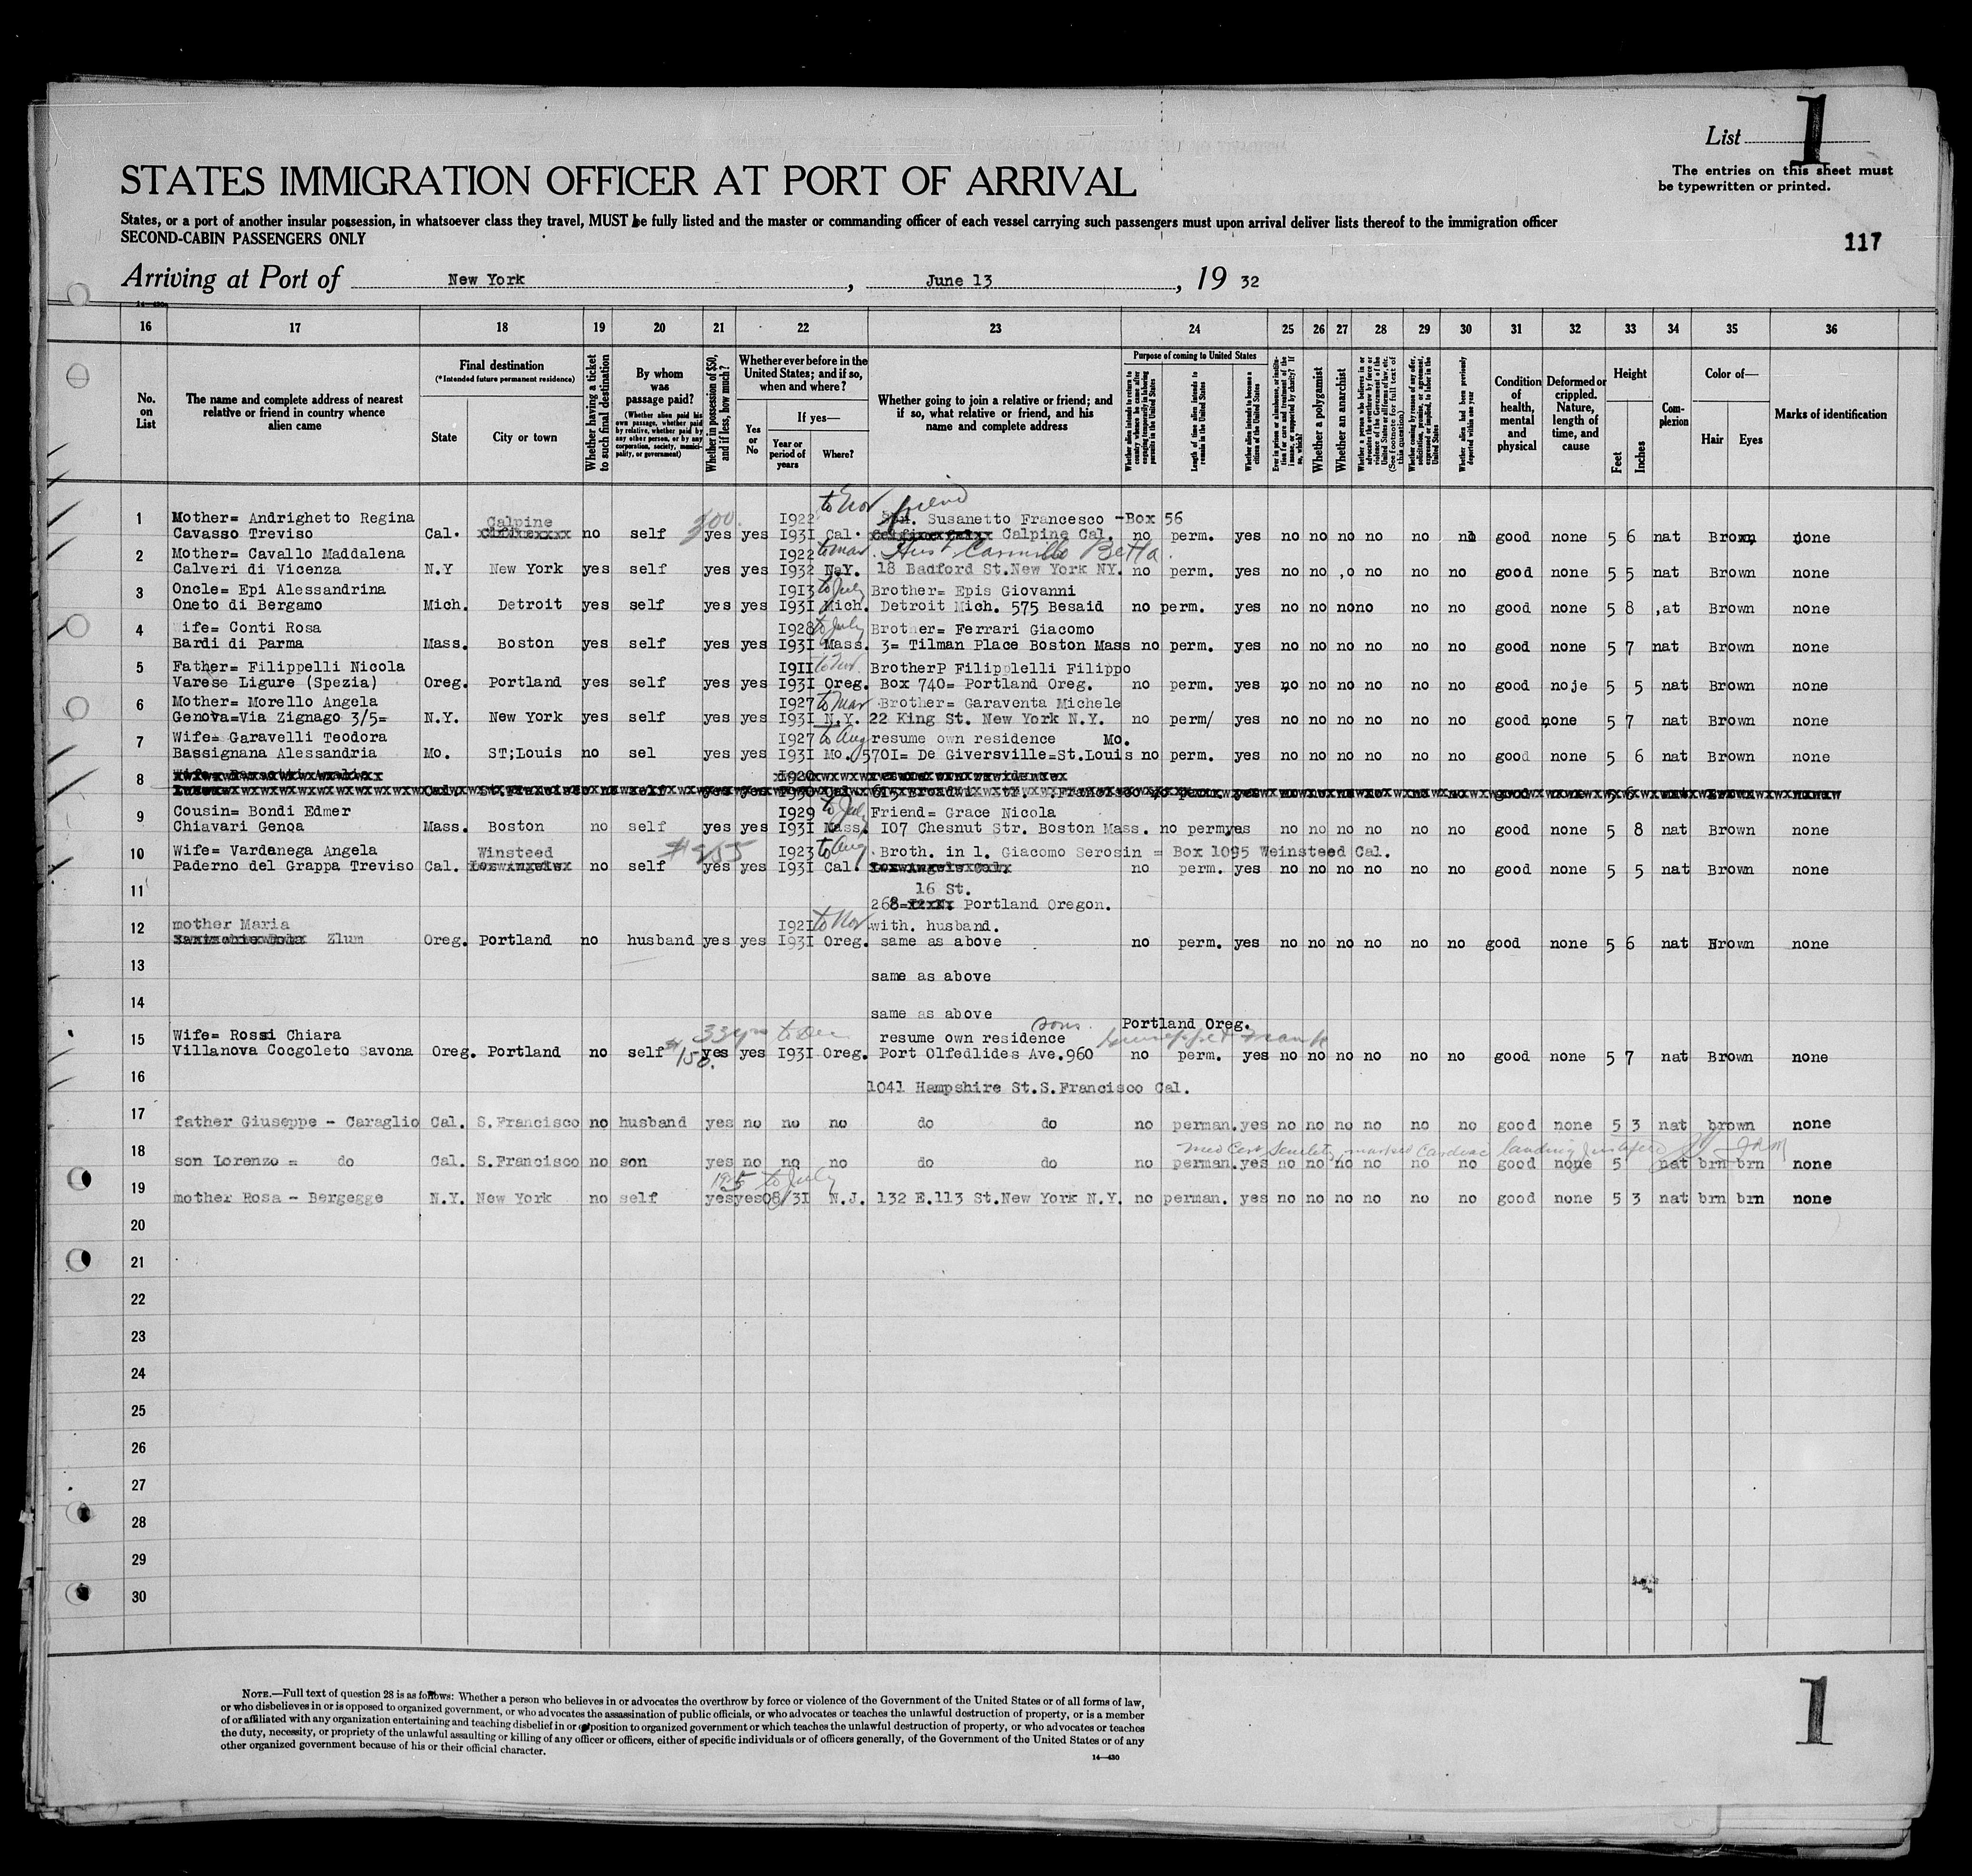 List 1
The entries on this sheet must
be typewritten or printed.
STATES IMMIGRATION OFFICER AT PORT OF ARRIVAL
States, or a port of another insular possession, in whatsoever class they travel, MUST be fully listed and the master or commanding officer of each vessel carrying such passengers must upon arrival deliver lists thereof to the immigration officer
SECOND-CABIN PASSENGERS ONLY
117
Arriving at Port of New York, June 13, 19 32
16 17 18 19 20 21 22 23 24 25 26 27 28 29 30 31 32 33 34 35 36
No. on List
The name and complete address of nearest relative or friend in country whence alien came
Final destination
(*Intended future permanent residence)
State
City or town
Whether having a ticket to such final destination
By whom was passage paid?
(Whether alien paid his own passage, whether paid by relative, whether paid by any other person, or by any corporation, society, municipality, or government)
Whether in possession of $50, and if less, how much?
Whether ever before in the United States; and if so, when and where?
Yes or No
If yes—
Year or period of years
Where?
Whether going to join a relative or friend; and if so, what relative or friend, and his name and complete address
Purpose of coming to United States
Whether alien intends to return to country whence he came after engaging temporarily in laboring pursuits in the United States
Length of time alien intends to remain in the United States
Whether alien intends to become a citizen of the United States
Ever in prison or almshouse, or institution for care and treatment of the insane, or supported by charity? If so, which?
Whether a polygamist
Whether an anarchist
Whether a person who believes in or advocates the overthrow by force or violence of the Government of the United States or all forms of law, etc. (See footnote for full text of this question)
Whether coming by reason of any offer, solicitation, promise, or agreement, expressed or implied, to labor in the United States
Whether alien had been previously deported within one year
Condition of health, mental and physical
Deformed or crippled. Nature, length of time, and cause
Height
Feet
Inches
Complexion
Color of—
Hair
Eyes
Marks of identification
1 Mother= Andrighetto Regina Calpine I922 to Nov friend Susanetto Francesco -Box 56
Cavasso Treviso Cal. no self 300 yes yes I93I Cal. Calpine Cal. no perm. yes no no no no no no good none 5 6 nat Brown none
2 Mother= Cavallo Maddalena I922 to mar. Husb Carmillo Betta.
Calveri di Vicenza N.Y New York yes self yes yes I932 N.Y. 18 Badford St.New York NY. no perm. yes no no ,o no no no good none 5 5 nat Brown none
3 Oncle= Epi Alessandrina I9I3 to July Brother= Epis Giovanni
Oneto di Bergamo Mich. Detroit yes self yes yes I93I Mich. Detroit Mich. 575 Besaid no perm. yes no no no no no no good none 5 8 ,at Brown none
4 ife= Conti Rosa I928 to July Brother= Ferrari Giacomo
Bardi di Parma Mass. Boston yes self yes yes I93I Mass. 3= Tilman Place Boston Mass no perm. yes no no no no no no good none 5 7 nat Brown none
5 Father= Filippelli Nicola I9II to Nov BrotherP Filipplelli Filippo
Varese Ligure (Spezia) Oreg. Portland yes self yes yes I93I Oreg. Box 740= Portland Oreg. no perm. yes no no no no no no good noje 5 5 nat Brown none
6 Mother= Morello Angela I927 to Mar Brother= Garaventa Michele
Genova=Via Zignago 3/5= N.Y. New York yes self yes yes I93I N.Y. 22 King St. New York N.Y. no perm/ yes no no no no no no good none 5 7 nat Brown none
7 Wife= Garavelli Teodora I927 to Aug resume own residence Mo.
Bassignana Alessandria Mo. ST;Louis no sel yes yes I93I Mo. 570I= De Giversville=St.Louis no perm. yes no no no no no no good none 5 6 nat Brown none
8
9 Cousin= Bondi Edmer I929 to July Friend= Grace Nicola
Chiavari Genoa Mass. Boston no self yes yes I93I Mass. I07 Chesnut Str. Boston Mass. no perm yes no no no no no no good none 5 8 nat Brown none
10 Wife= Vardanega Angela Winsteed $255 I923 to Aug Broth. in l. Giacomo Serosin = Box 1095 Weinsteed Cal.
Paderno del Grappa Treviso Cal. no self yes yes I93I Cal. no perm. yes no no no no no no good none 5 5 nat Brown none
11 16 St.
268= Portland Oregon.
12 mother Maria I92I to Nov with. husband.
Zlum Oreg. Portland no husband yes yes I93I Oreg. same as above no perm. yes no no no no no no good none 5 6 nat Brown none
13 same as above
14 same as above
15 Wife= Rossi Chiara 33 yrs to Dec resume own residence sons. Portland Oreg. Frank
Villanova Cocgoleto Savona Oreg. Portland no self $150. yes yes I93I Oreg. Port Olfedlides Ave.960 no perm. yes no no no no no no good none 5 7 nat Brown none
16 1041 Hampshire St.S.Francisco Cal.
17 father Giuseppe - Caraglio Cal. S.Francisco no husband yes no no no do do no perman. yes no no no no no no good none 5 3 nat brown none
Med Cert Senility, marked Cardiac landing
18 son Lorenzo = do Cal. S.Francisco no son yes no no no do do no perman. yes no no no no no no good none 5 nat brn brn none
125 to July
19 mother Rosa - Bergegge N.Y. New York no self yes yes 08/3I N.J. 132 E.113 St.New York N.Y. no perman. yes no no no no no no good none 5 3 nat brn brn none
20
21
22
23
24
25
26
27
28
29
30
NOTE.—Full text of question 28 is as follows: Whether a person who believes in or advocates the overthrow by force or violence of the Government of the United States or of all forms of law,
or who disbelieves in or is opposed to organized government, or who advocates the assassination of public officials, or who advocates or teaches the unlawful destruction of property, or is a member
of or affiliated with any organization entertaining and teaching disbelief in or opposition to organized government or which teaches the unlawful destruction of property, or who advocates or teaches
the duty, necessity, or propriety of the unlawful assaulting or killing of any officer or officers, either of specific individuals or of officers generally, of the Government of the United States or of any
other organized government because of his or their official character.
14—430
1